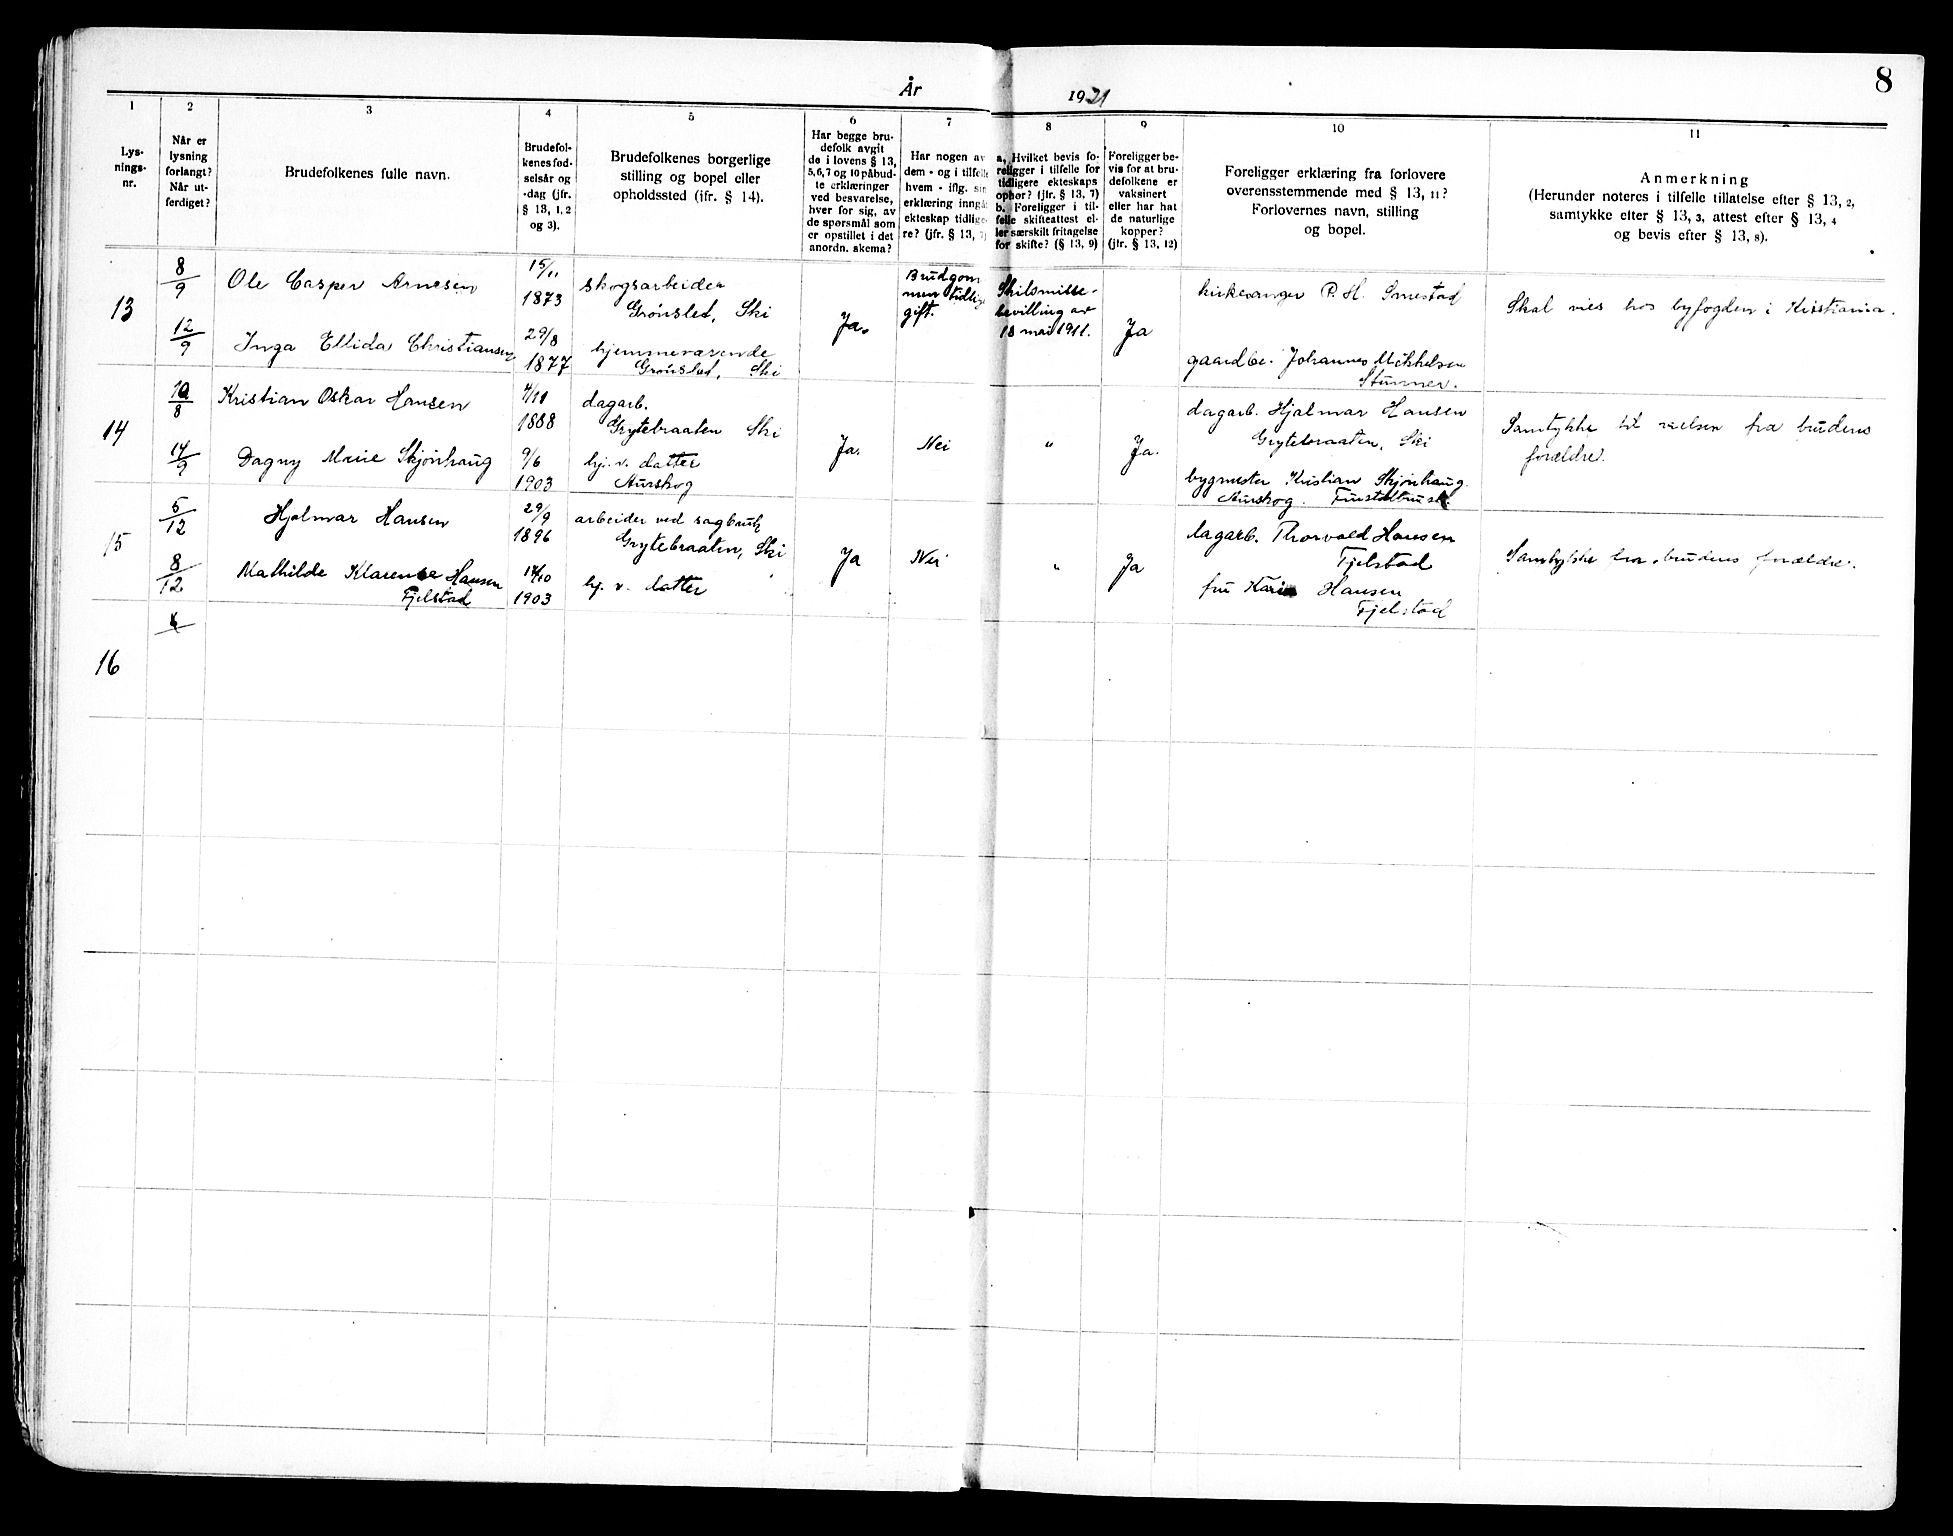 8
År 1921
1 2 3 4 5 6 7 8 9 10 11
Lys-
nings-
nr.
Når er
lysning
forlangt?
Når ut-
ferdiget?
Brudefolkenes fulle navn.
Brudefol-
kenes fød-
selsår og
-dag (jfr.
§ 13, 1, 2
og 3).
Brudefolkenes borgerlige
stilling og bopel eller
opholdssted (ifr. § 14).
Har begge bru-
defolk avgit
de i lovens § 13,
5, 6, 7 og 10 påbud-
te erklæringer
ved besvarelse,
hver for sig, av
de spørsmål som
er opstillet i det
anordn. skema?
Har nogen av
dem - og i tilfelle
hvem - iflg. sin
erklæring inngå
ekteskap tidlige-
re? (jfr. § 13, 7)
a. Hvilket bevis fo-
religger i tilfelle for
tidligere ekteskaps
ophør? (jfr. § 13, 7)
b. Foreligger i til-
felle skifteattest el-
ler særskilt fritagelse
for skifte? (§ 13, 9)
Foreligger be-
vis for at bru-
defolkene er
vaksinert
eller har hat
de naturlige
kopper?
(jfr. § 13, 12)
Foreligger erklæring fra forlovere
overensstemmende med § 13, 11?
Forlovernes navn, stilling
og bopel.
Anmerkning
(Herunder noteres i tilfelle tillatelse efter § 13, 2,
samtykke efter § 13, 3, attest efter § 13, 4
og bevis efter § 13, 8).
13
8/9
12/9
Ole Casper Arnesen
Inga Ellida Christiansen
15/11
1873
29/8
1877
skogsarbeider
Grønsled, Ski
hjemmeværende
Grønsled, Ski
Ja.
Brudgom
men tidlig
gift.
Skilsmisse-
bevilling av
18 mai 1911.
Ja
kirkesanger P. H. Smestad
gaardbr. Johannes Mikkelsen
Stunner.
Skal vies hos byfogden i Kristiania.
14
10/8
14/9
Kristian Oskar Hansen
Dagny Marie Skjønhaug
4/11
1888
9/6
1903
dagarb.
Grytebraaten Ski
hj. v. datter
Aurskog
Ja.
Nei
"
Ja.
dagarb. Hjalmar Hansen
Grytebraaten, Ski
bygmester Kristian Skjønhaug.
Aurskog.
Samtykke til vielsen fra brudens
forældre.
15
5/12
8/12
Hjalmar Hansen
Mathilde Klarense Hansen
Fjelstad
29/9
1896
14/10
1903
arbeider ved sagbruk
Grytebraaten, Ski
hj. v. datter
Ja
Nei
"
Ja
dagarb. Thorvald Hansen
Fjelstad
fru Karin Hansen
Fjelstad
Samtykke fra brudens forældre.
16